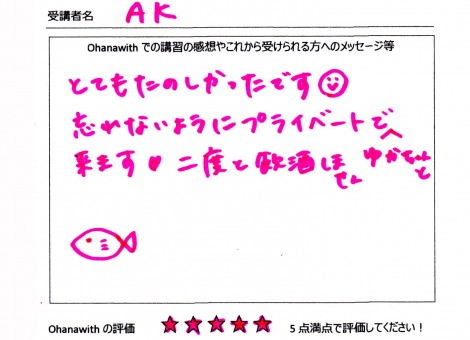 受講者名 AK
Ohanawith での講習の感想やこれから受けられる方へのメッセージ等
とてもたのしかったです
忘れないようにプライベートで
来ます♥ 二度と飲酒しません ゆかちゃんと
Ohanawith の評価 ★★★★★ 5 点満点で評価してください！